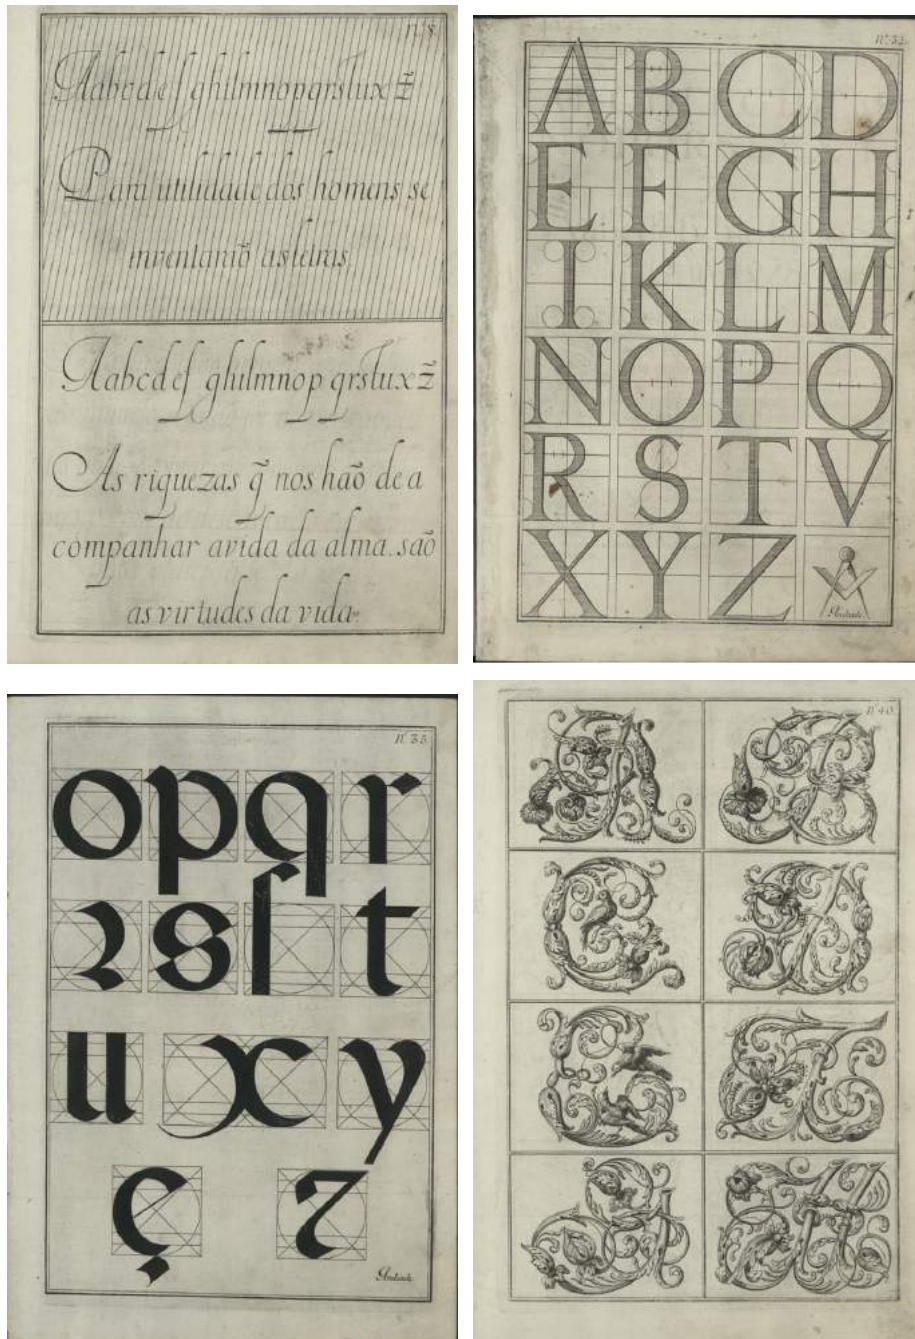 Nº 8
Aabcdef ghilmnopqrstux z̃
Para utilidade dos homens se
inventarão as letras.
Aabcdef ghilmnop qrstuxz̃
As riquezas q̃ nos haõ de a
companhar avida da alma. saõ
as virtudes da vida.
Nº 32
A B C D
E F G H
I K L M
N O P Q
R S T V
X Y Z
Andrade
Nº 35
o p q r
ꝛ s ſ t
u x y
ç z
Andrade
Nº 40
A B
C D
E F
G H